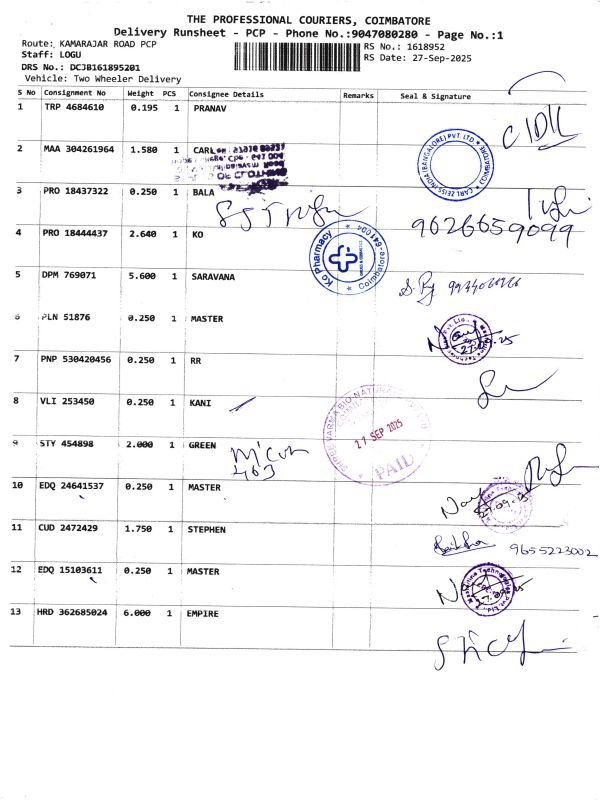 THE PROFESSIONAL COURIERS, COIMBATORE
Delivery Runsheet - PCP - Phone No.:9047080280 - Page No.:1
Route: KAMARAJAR ROAD PCP
RS No.: 1618952
Staff: LOGU
RS Date: 27-Sep-2025
DRS No.: DCJB161895201
Vehicle: Two Wheeler Delivery
S No Consignment No Weight PCS Consignee Details Remarks Seal & Signature
1 TRP 4684610 0.195 1 PRANAV
2 MAA 304261964 1.580 1 CARL
CARL ZEISS INDIA (BANGALORE) PVT. LTD. COIMBATORE
3 PRO 18437322 0.250 1 BALA
9626659099
4 PRO 18444437 2.640 1 KO
KO Pharmacy Coimbatore-641 004
5 DPM 769071 5.600 1 SARAVANA
6 PLN 51876 0.250 1 MASTER
7 PNP 530420456 0.250 1 RR
8 VLI 253450 0.250 1 KANI
27 SEP 2025
PAID
9 STY 454898 2.000 1 GREEN
10 EDQ 24641537 0.250 1 MASTER
11 CUD 2472429 1.750 1 STEPHEN
9655223002
12 EDQ 15103611 0.250 1 MASTER
13 HRD 362685024 6.000 1 EMPIRE